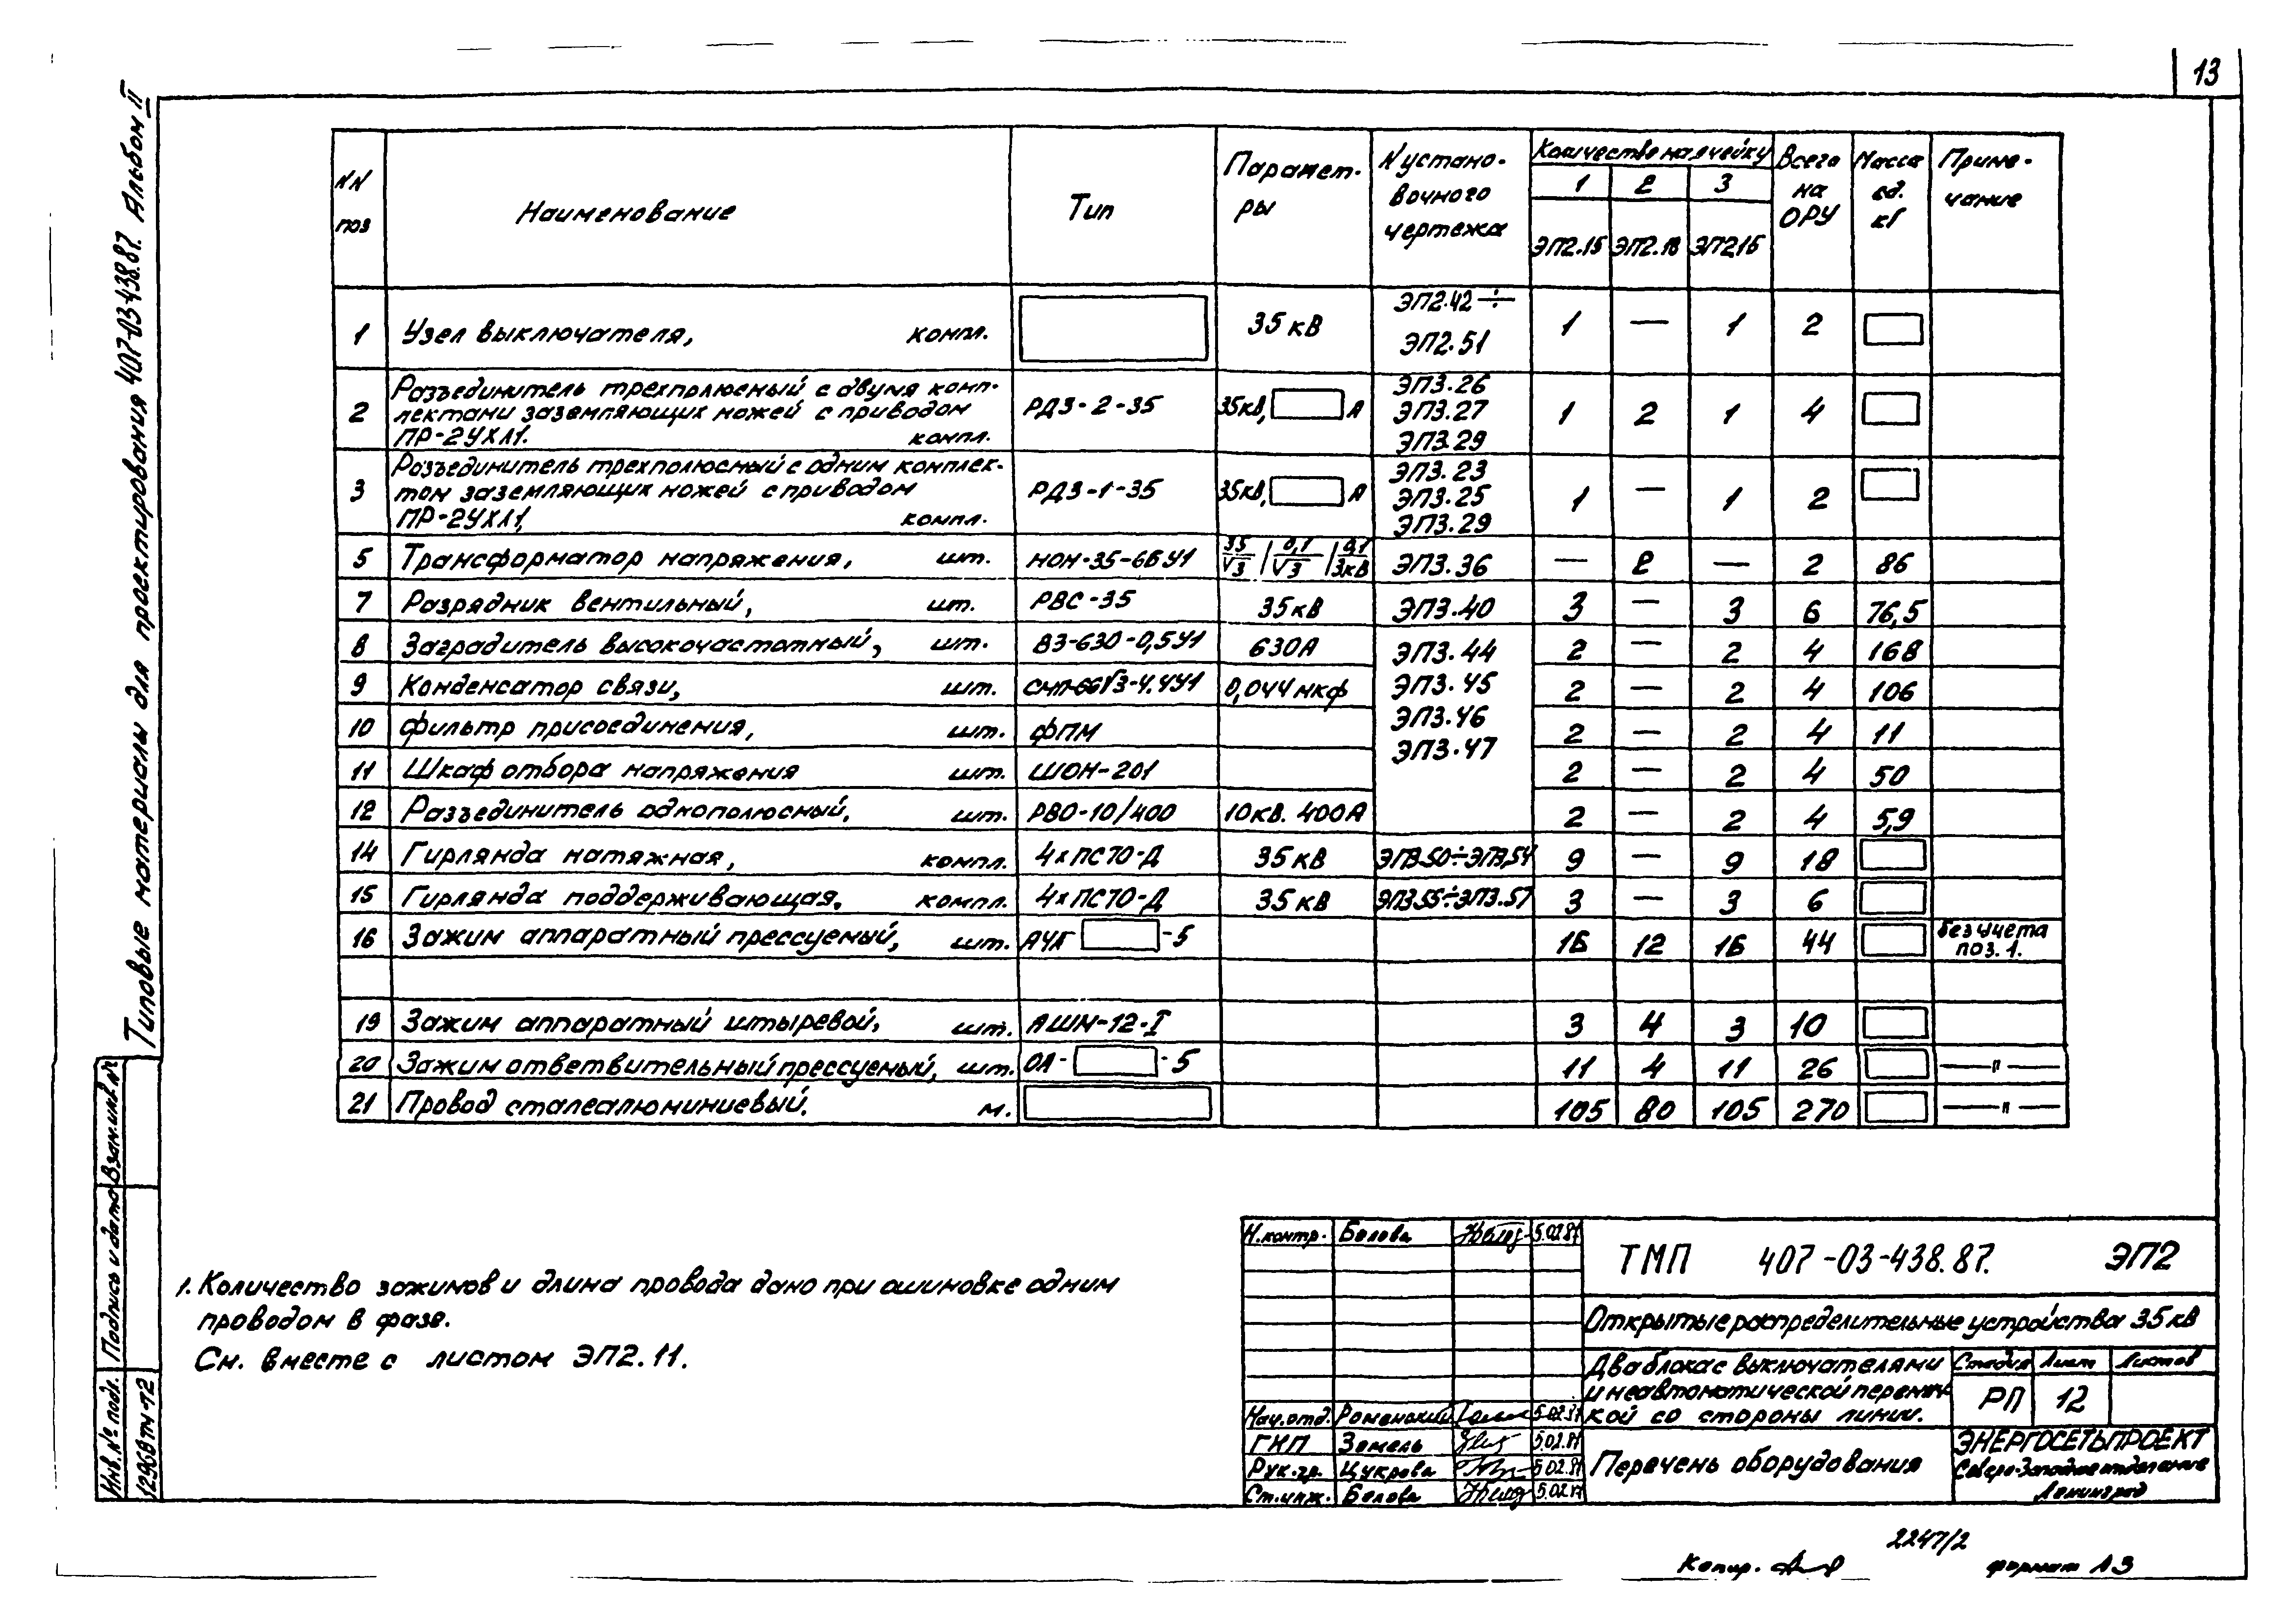 13
Типовые материалы для проектирования 407-03-438.87. Альбом II
NN поз | Наименование | Тип | Парамет-ры | N устано-вочного чертежа | Количество на ячейку | Всего на ОРУ | Масса ед. кг | Приме-чание
1 | 2 | 3
ЭП2.15 | ЭП2.18 | ЭП2.16
1 | Узел выключателя, компл. | 35 кВ | ЭП2.42 ÷ ЭП2.51 | 1 | — | 1 | 2
2 | Разъединитель трехполюсный с двумя комп-лектами заземляющих ножей с приводом ПР-2УХЛ1. компл. | РДЗ-2-35 | 35кВ, А | ЭП3.26 ЭП3.27 ЭП3.29 | 1 | 2 | 1 | 4
3 | Разъединитель трехполюсный с одним комплек-том заземляющих ножей с приводом ПР-2УХЛ1, компл. | РДЗ-1-35 | 35кВ, А | ЭП3.23 ЭП3.25 ЭП3.29 | 1 | — | 1 | 2
5 | Трансформатор напряжения, шт. | НОМ-35-66У1 | 35/√3 / 0,1/√3 / 0,1/3кВ | ЭП3.36 | — | 2 | — | 2 | 86
7 | Разрядник вентильный, шт. | РВС-35 | 35кВ | ЭП3.40 | 3 | — | 3 | 6 | 76,5
8 | Заградитель высокочастотный, шт. | ВЗ-630-0,5У1 | 630А | ЭП3.44 | 2 | — | 2 | 4 | 168
9 | Конденсатор связи, шт. | СМП-66√3-4.4У1 | 0,044 мкф | ЭП3.45 | 2 | — | 2 | 4 | 106
10 | Фильтр присоединения, шт. | ФПМ | ЭП3.46 | 2 | — | 2 | 4 | 11
11 | Шкаф отбора напряжения шт. | ШОН-201 | ЭП3.47 | 2 | — | 2 | 4 | 50
12 | Разъединитель однополюсный, шт. | РВО-10/400 | 10кВ. 400А | 2 | — | 2 | 4 | 5,9
14 | Гирлянда натяжная, компл. | 4хПС70-Д | 35кВ | ЭП3.50÷ЭП3.54 | 9 | — | 9 | 18
15 | Гирлянда поддерживающая, компл. | 4хПС70-Д | 35кВ | ЭП3.55÷ЭП3.57 | 3 | — | 3 | 6
16 | Зажим аппаратный прессуемый, шт. | А4А -5 | 16 | 12 | 16 | 44 | без учета поз. 1.
19 | Зажим аппаратный штыревой, шт. | АШМ-12-I | 3 | 4 | 3 | 10
20 | Зажим ответвительный прессуемый, шт. | ОА- -5 | 11 | 4 | 11 | 26 | —"—
21 | Провод сталеалюминиевый. м. | 105 | 80 | 105 | 270 | —"—
1. Количество зажимов и длина провода дано при ошиновке одним
проводом в фазе.
См. вместе с листом ЭП2.11.
Взам.инв.№
Подпись и дата
Инв.№ подл.
12968тм-т2
Н.контр. Белова 5.02.87
Нач.отд. Роменский 5.02.87
ГИП Земель 5.02.87
Рук.гр. Цукрова 5.02.87
Ст.инж. Белова 5.02.87
ТМП 407-03-438.87. ЭП2
Открытые распределительные устройства 35 кВ
Два блока с выключателями
и неавтоматической перемыч-
кой со стороны линии.
Стадия Лист Листов
РП 12
Перечень оборудования
ЭНЕРГОСЕТЬПРОЕКТ
Северо-Западное отделение
Ленинград
2247/2
Копир.
формат А3